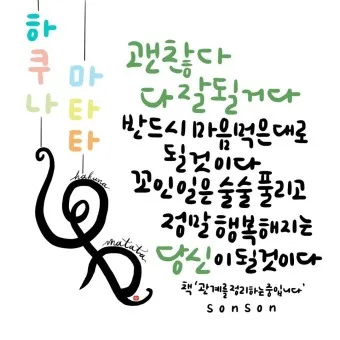 하쿠나
마타타
hakuna
matata
괜찮다
다 잘될거다
반드시 마음먹은대로
될것이다
꼬인일은 술술 풀리고
정말 행복해지는
당신이 될것이다
책 '관계를 정리하는 중입니다'
SonSon